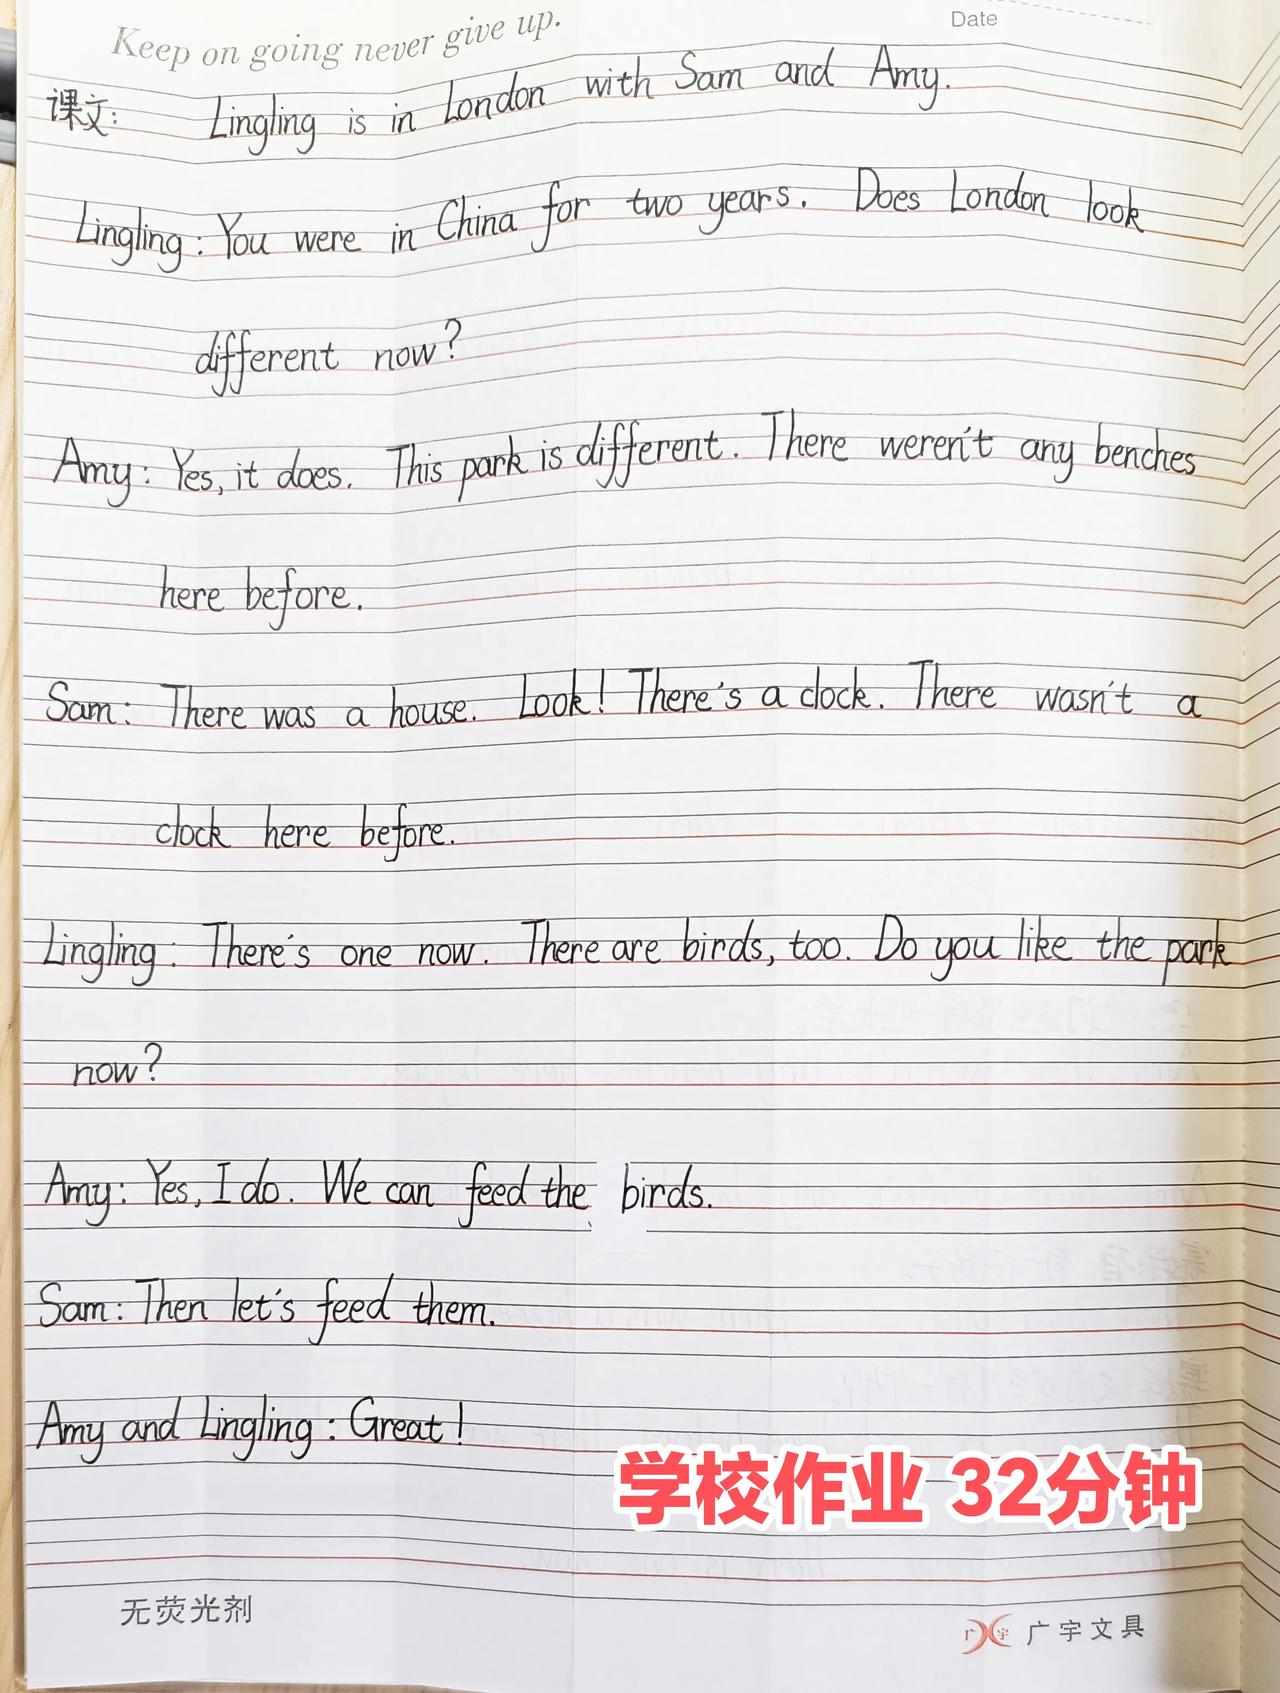 Keep on going never give up.
Date
课文: Lingling is in London with Sam and Amy.
Lingling: You were in China for two years. Does London look
different now?
Amy: Yes, it does. This park is different. There weren't any benches
here before.
Sam: There was a house. Look! There's a clock. There wasn't a
clock here before.
Lingling: There's one now. There are birds, too. Do you like the park
now?
Amy: Yes, I do. We can feed the birds.
Sam: Then let's feed them.
Amy and Lingling: Great!
学校作业 32分钟
无荧光剂
广宇 广宇文具